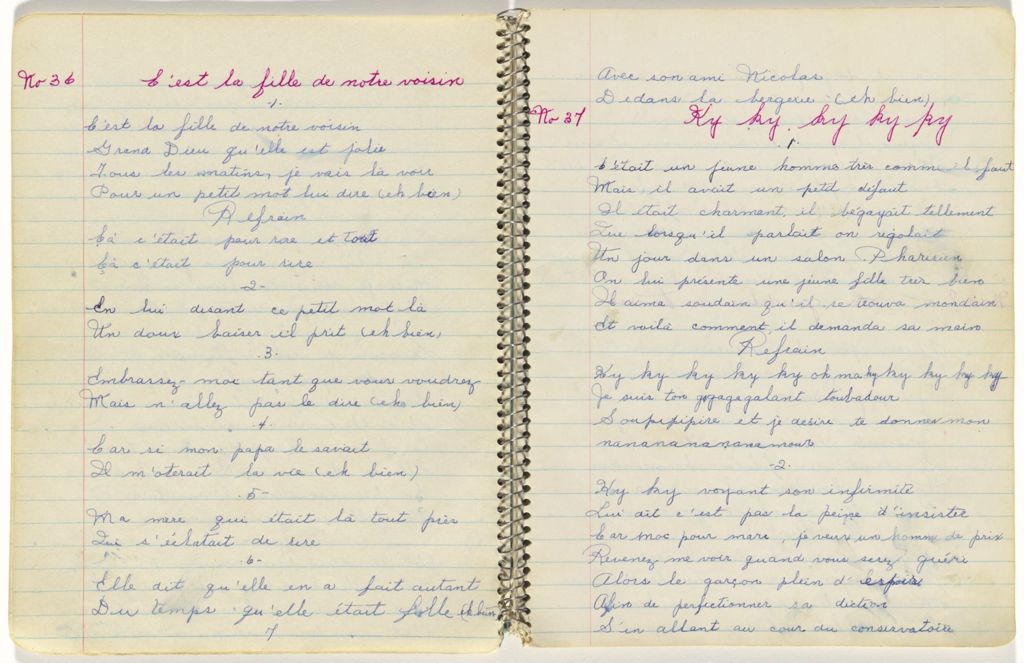 No 36 C'est la fille de notre voisin
-1-
C'est la fille de notre voisin
Grand Dieu qu'elle est jolie
Tous les matins, je vais la voir
Pour un petit mot lui dire (eh bien)
Refrain
Çà c'était pour rire et tout
Çà c'était pour rire
-2-
En lui disant ce petit mot là
Un doux baiser il prit (eh bien)
.3.
Embrassez-moi tant que vous voudrez
Mais n'allez pas le dire (eh bien)
.4.
Car si mon papa le savait
Il m'oterait la vie (eh bien)
-5-
Ma mere qui était là tout près
Qui s'éclatait de rire
-6-
Elle dit qu'elle en a fait autant
Du temps qu'elle était fille (eh bien)
7
Avec son ami Nicolas
Dedans la bergerie (eh bien)
No 37 Ky ky ky ky ky
.1.
C'était un jeune homme très comme il faut
Mais il avait un petit défaut
Il était charmant, il bégayait tellement
Que lorsqu'il parlait on rigolait
Un jour dans un salon
On lui présente une jeune fille très bien
Il aima soudain qu'il se trouva mondain
Et voilà comment il demanda sa main
Refrain
Ky ky ky ky ky oh ma ky ky ky ky ky
Je suis ton gagagagalant toubadour
Soupipipipire et je désire te donner mon
nanananananamour
-2-
Ky ky voyant son infirmité
Lui dit c'est pas la peine d'insister
Car moi pour mari, je veux un homme de prix
Revenez me voir quand vous serez guéri
Alors le garçon plein d'espoirs
Afin de perfectionner sa diction
S'en allant au cour du conservatoire